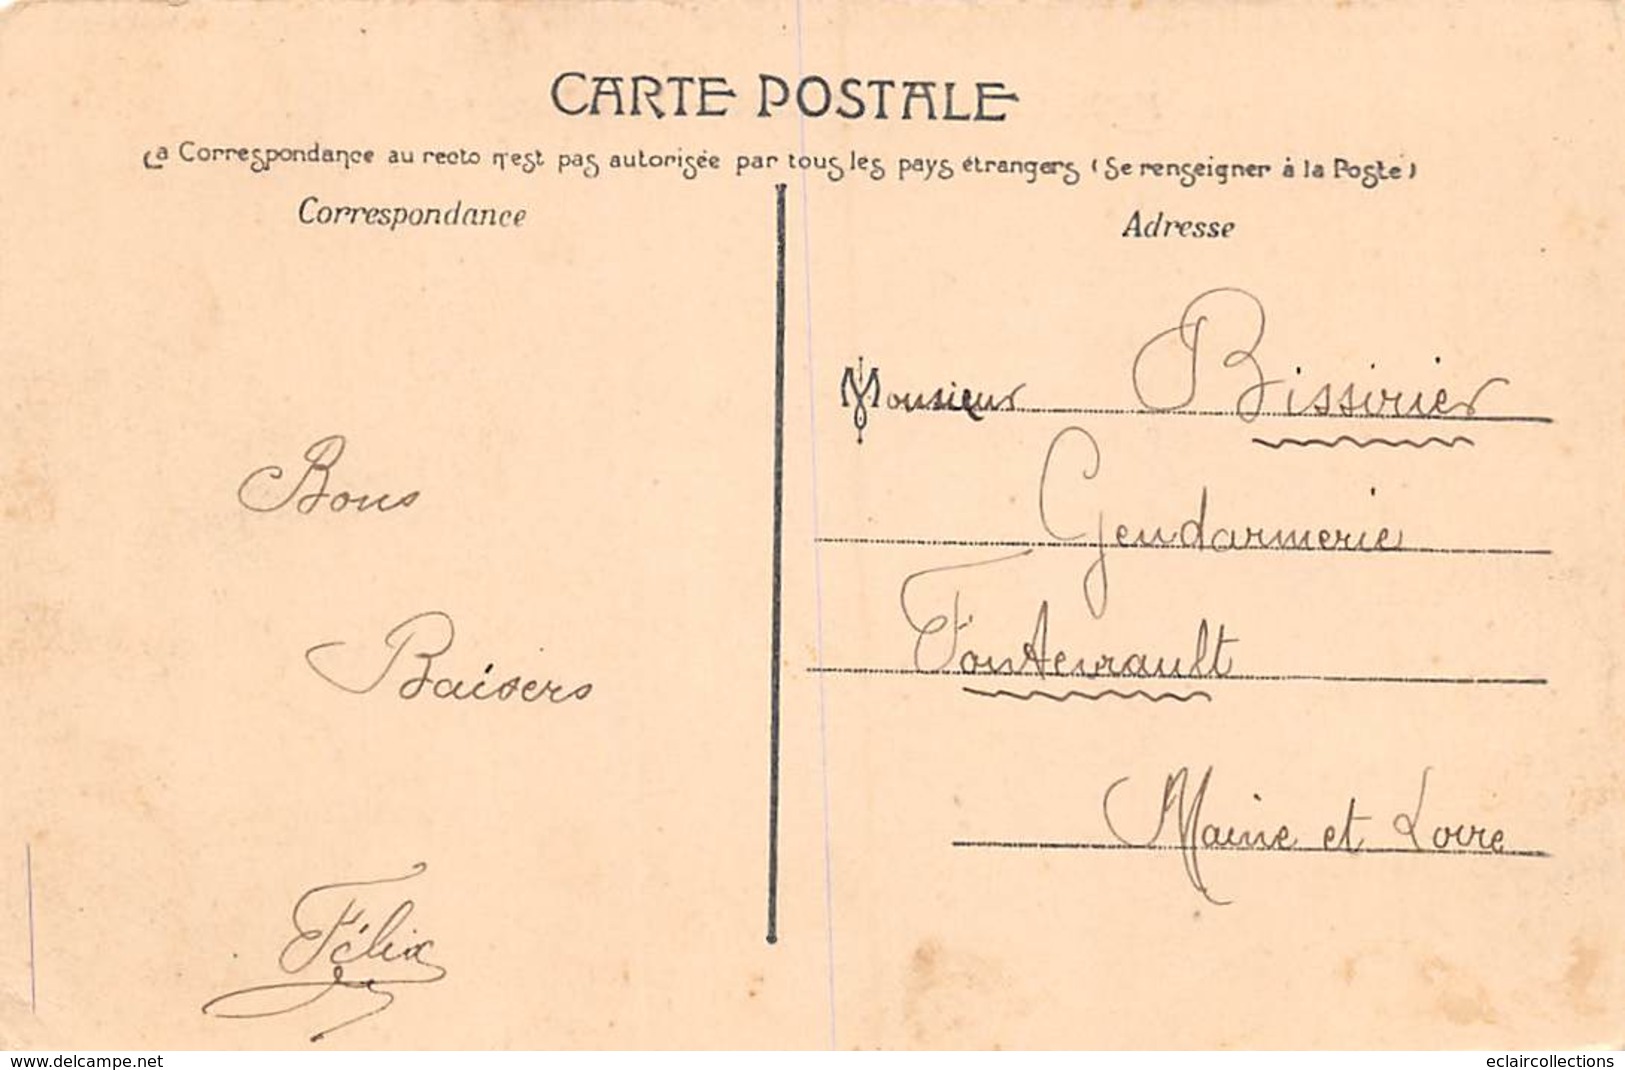 CARTE POSTALE
La Correspondance au recto n'est pas autorisée par tous les pays étrangers (Se renseigner à la Poste)
Correspondance
Adresse
Monsieur Bissirier
Gendarmerie
Fontevrault
Maine et Loire
Bons
Baisers
Félix
www.delcampe.net
eclaircollections